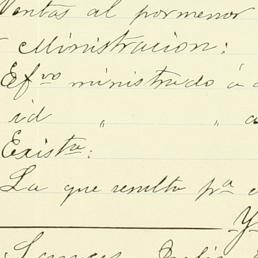 Ventas al pormenor
Ministracion:
Efvo ministrado á
id " "
Exista:
La que resulta pa
Y